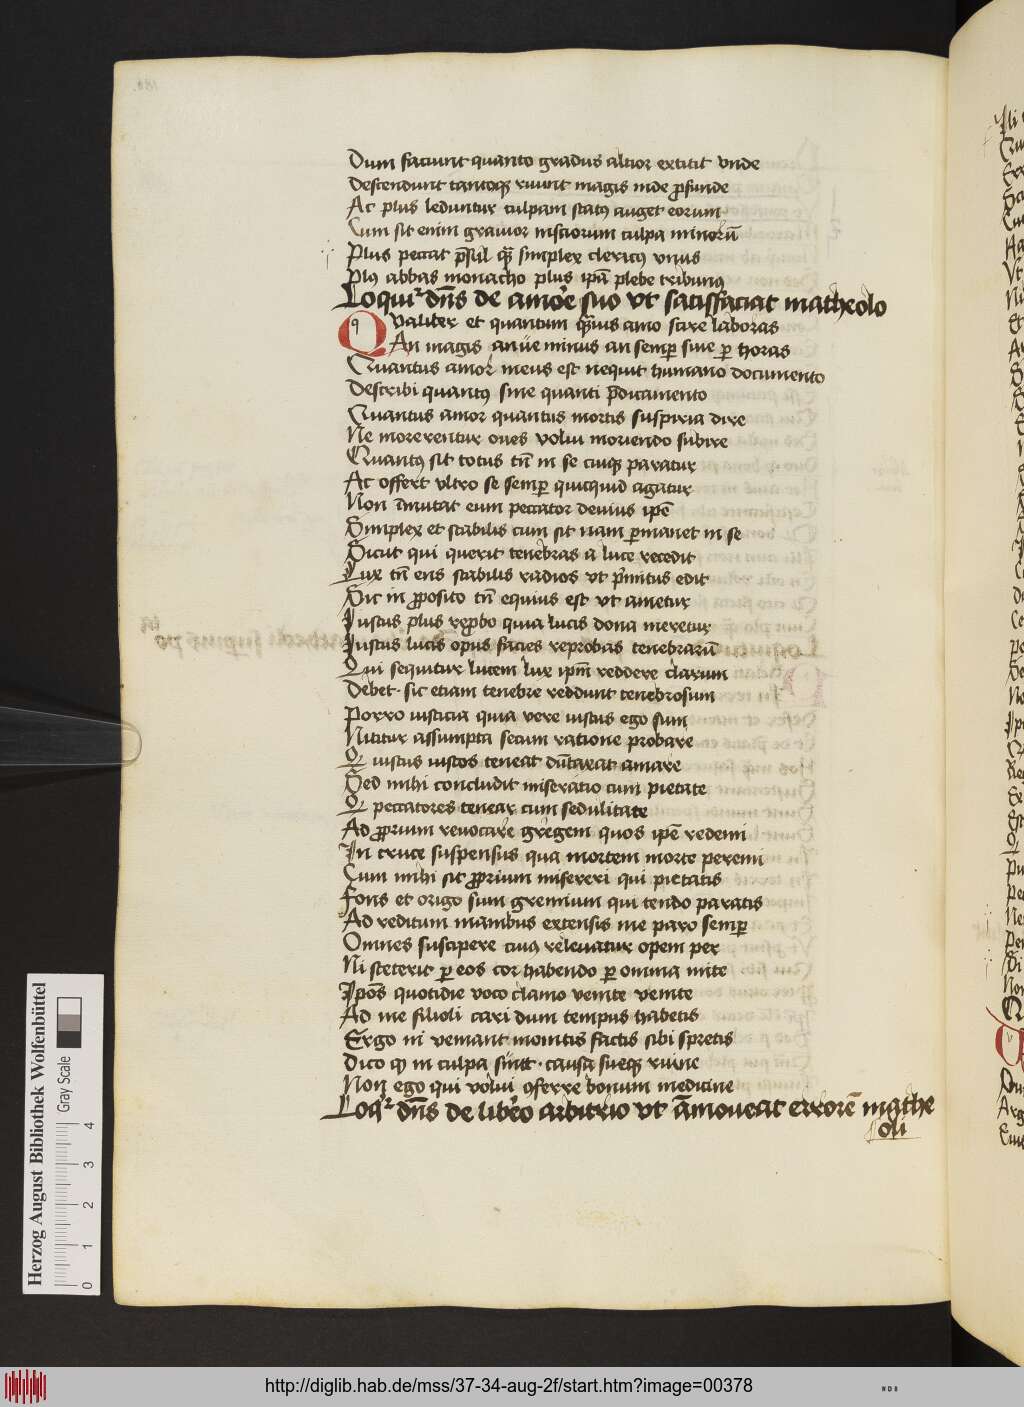 Dum faciunt quanto gradus altior extitit vnde
Descendunt tantoq̄ ruunt magis inde ꝓfunde
Ac plus leduntur culpam statꝰ auget eorum
Cum sit enim grauior insciorum culpa minorū
Plus peccat p̄sul q̄ȝ simplex clericꝰ vnus
Plꝰ abbas monacho plus ipā plebe tribunꝰ
Loquit᷑ dn̄s de amore suo vt satisfaciat matheolo
Qualiter et quantum q̄uis amo scire laboras
An magis an ūe minus an semꝑ siue ꝑ horas
Quantus amor meus est nequit humano documento
Describi quantꝰ sine quanti p̄dicamento
Quantus amor quantus mortis suspiria dire
Ne morerentur oues volui moriendo subire
Quantꝰ sit totus tn̄ in se cuiqꝫ paratur
Ac offert vltro se semꝑ quicquid agatur
Non īmutat eum peccator deuius ipē
Simplex et stabilis cum sit nam ꝑmanet in se
Sicut qui querit tenebras a luce recedit
Lux tn̄ ens stabilis radios vt p̄mitus edit
Sic in ꝓposito tn̄ equius est vt ametur
Iustus plus reꝓbo quia lucis dona meretur
Iustus lucis opus facies reprobas tenebrarū
Qui sequitur lucem lux ipm̄ reddere clarum
Debet · sic etiam tenebre reddunt tenebrosum
Porro iusticia quia vere iustus ego sum
Nititur assumpta secum ratione probare
Qꝫ iustus iustos teneat dūtaxat amare
Sed mihi concludit miseratio cum pietate
Qꝫ peccatores tenear cum sedulitate
Ad ꝓprium reuocare gregem quos ipē redemi
In cruce suspensus qua mortem morte peremi
Cum mihi sit ꝓprium misereri qui pietatis
Fons et origo sum gremium qui tendo paratis
Ad reditum manibus extensis me paro semꝑ
Omnes suscipere cuiꝰ releuatur opem per
Ni steterit ꝑ eos cor habendo ꝑ omnia mite
Ipōs quotidie voco clamo venite venite
Ad me filioli cari dum tempus habetis
Ergo ni veniant monitis factis sibi spretis
Dico ꝙ in culpa sūt · causa sueqꝫ ruine
Non ego qui volui ꝯferre bonum medicine
Loqit᷑ dn̄s de libero arbitrio vt āmoueat errorē mathe
oli
Herzog August Bibliothek Wolfenbüttel
Gray Scale
0 1 2 3 4
http://diglib.hab.de/mss/37-34-aug-2f/start.htm?image=00378